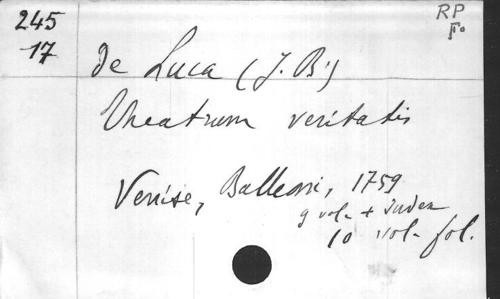 245
17
RP
F°
de Luca (J. B.)
Theatrum veritatis
Venise, Balleoni, 1759
9 vol. + index
10 vol. fol.